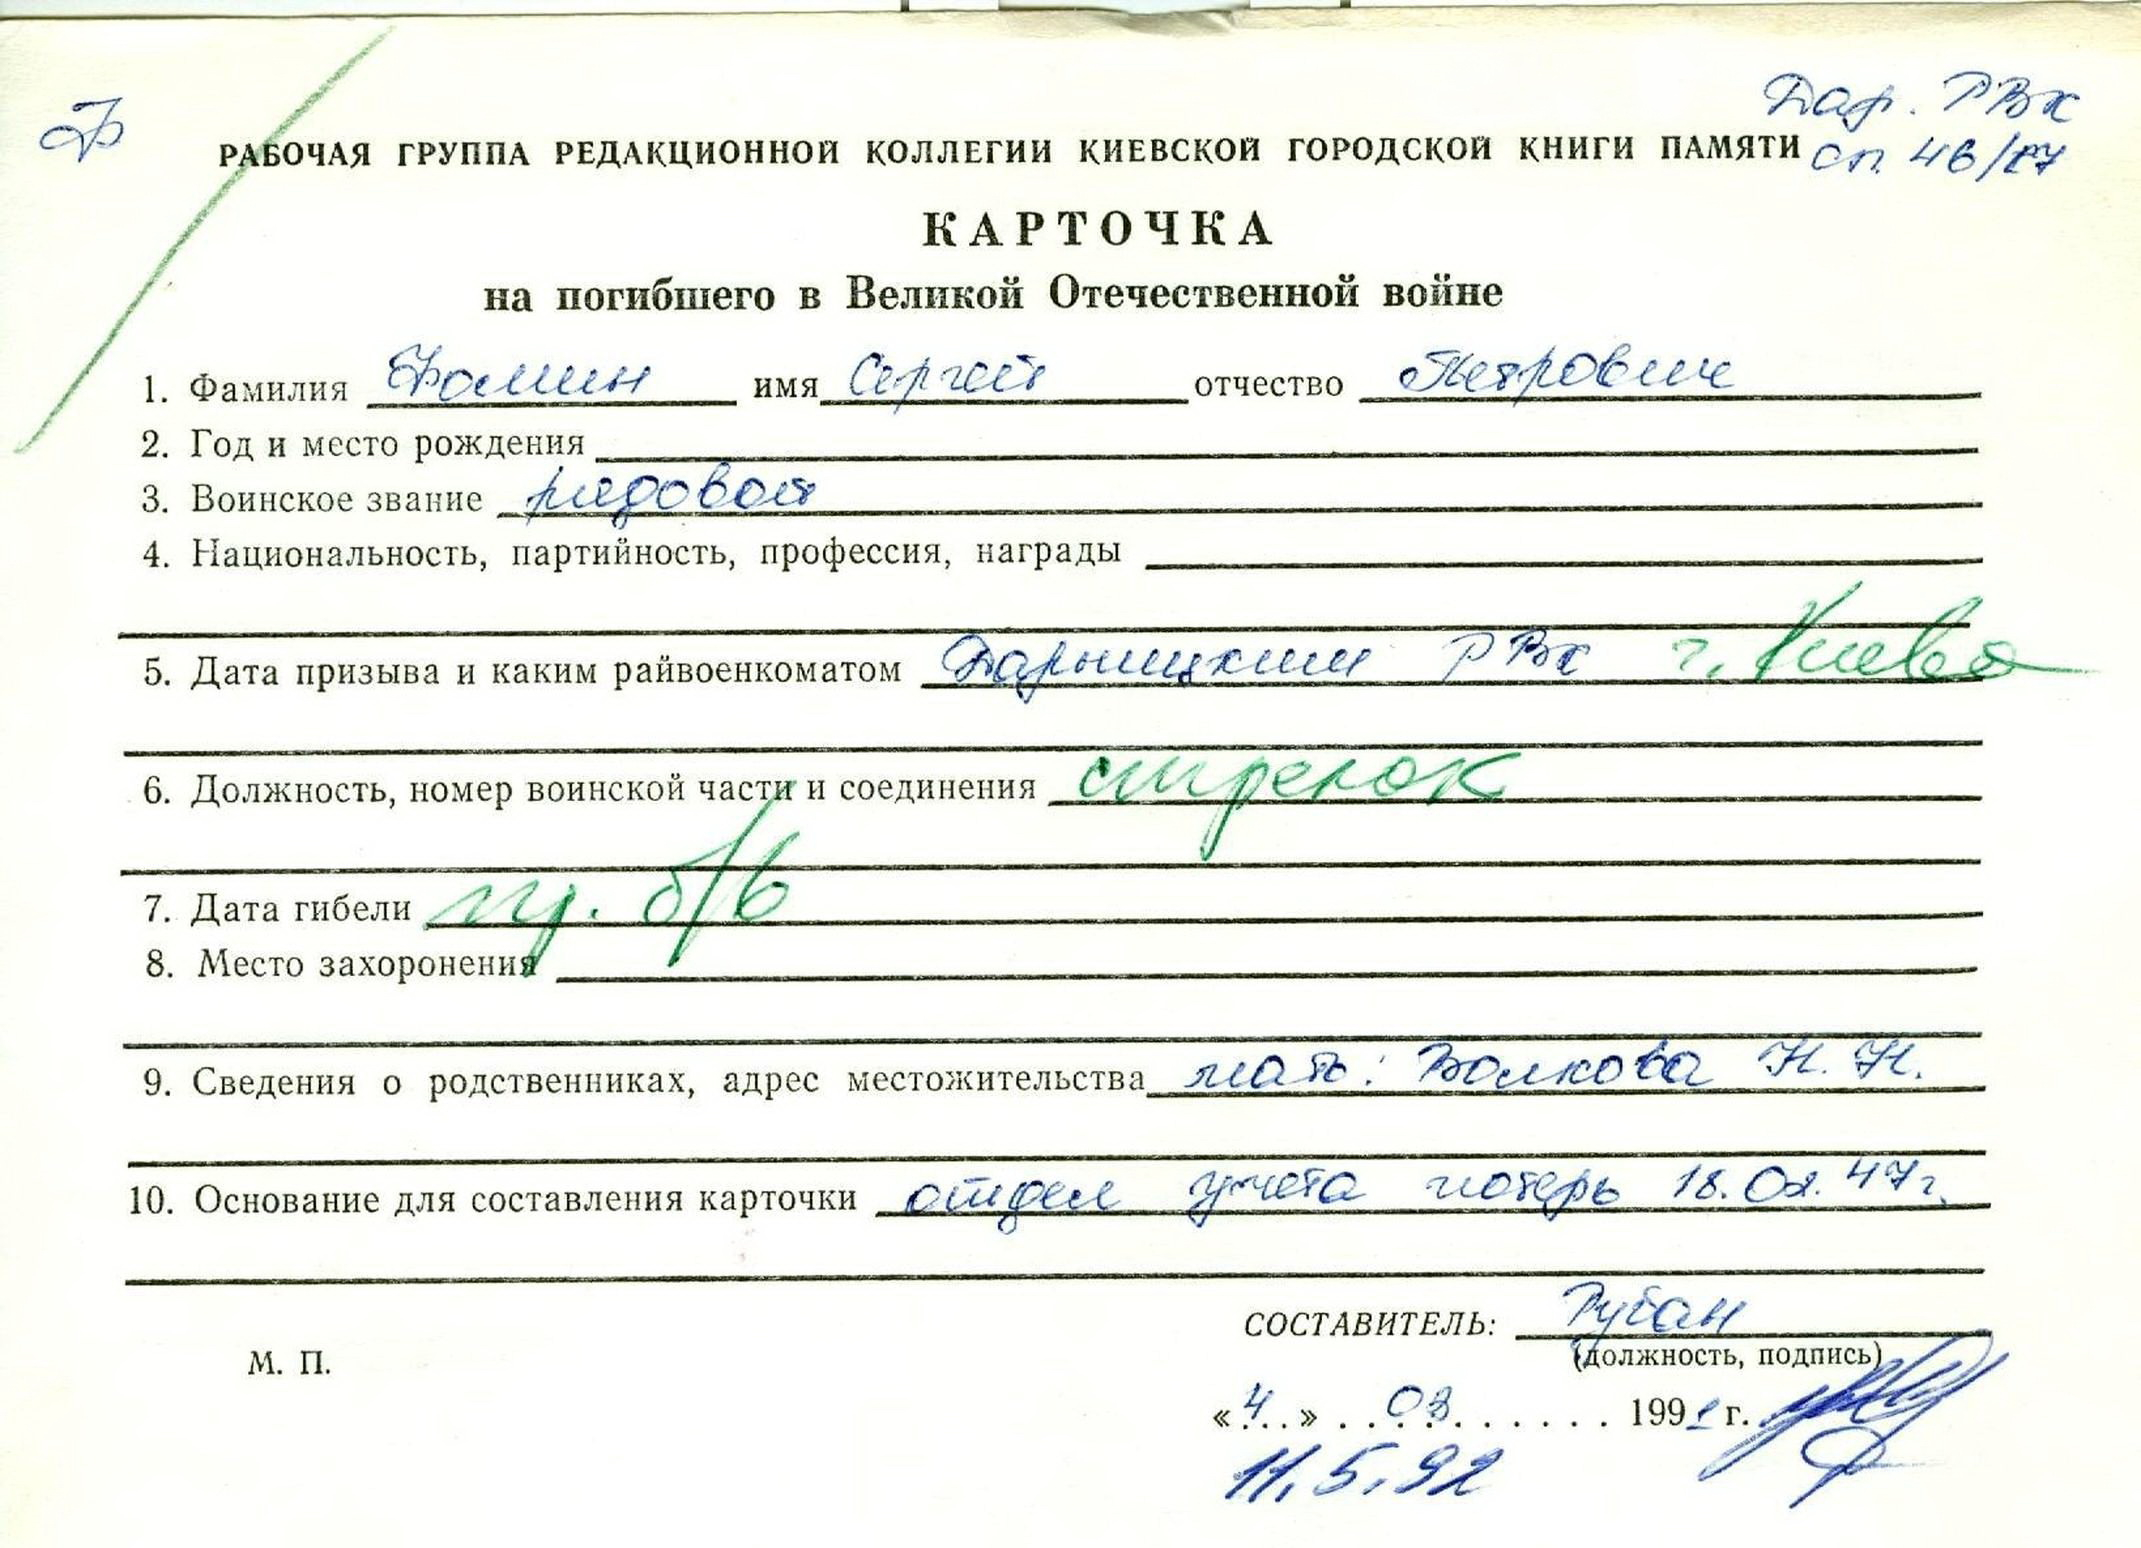 Ф
Дар. РВК
РАБОЧАЯ ГРУППА РЕДАКЦИОННОЙ КОЛЛЕГИИ КИЕВСКОЙ ГОРОДСКОЙ КНИГИ ПАМЯТИ сп. 46/
КАРТОЧКА
на погибшего в Великой Отечественной войне
1. Фамилия Фомин имя Сергей отчество Петрович
2. Год и место рождения
3. Воинское звание рядовой
4. Национальность, партийность, профессия, награды
5. Дата призыва и каким райвоенкоматом Дарницким РВК г. Киева
6. Должность, номер воинской части и соединения стрелок
7. Дата гибели пр. б/в
8. Место захоронения
9. Сведения о родственниках, адрес местожительства мать: Волкова Н. Н.
10. Основание для составления карточки отдел учета потерь 18. 47 г.
СОСТАВИТЕЛЬ: Рубан
(должность, подпись)
М. П.
«4» 03 199 г.
11.5.92